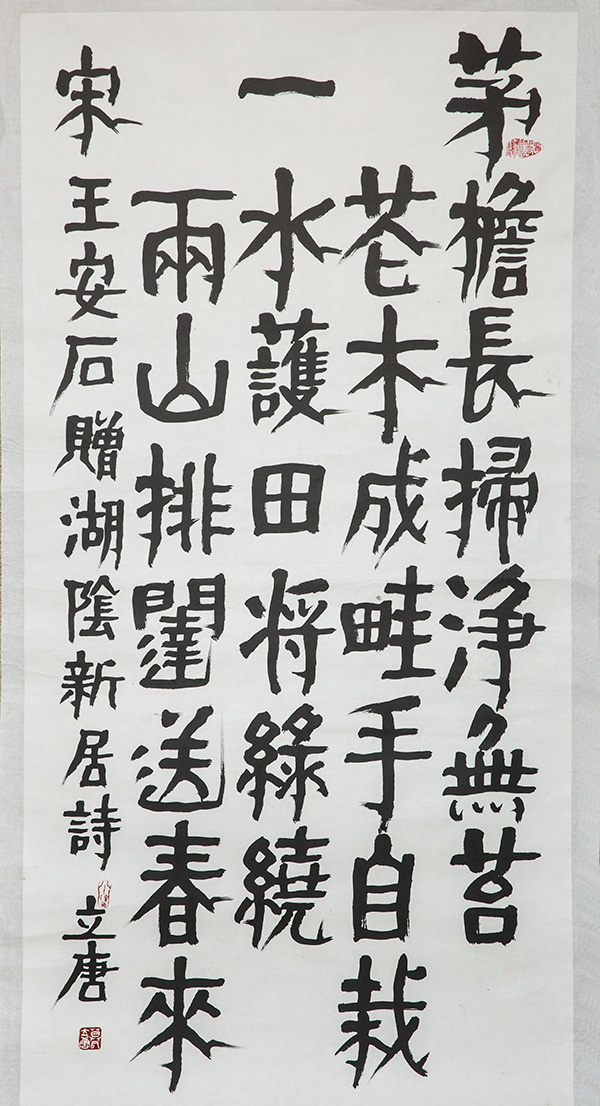 茅檐長掃浄無苔
芲木成畦手自栽
一水護田將綠繞
兩山排闥送春來
宋王安石贈湖陰新居詩 立唐